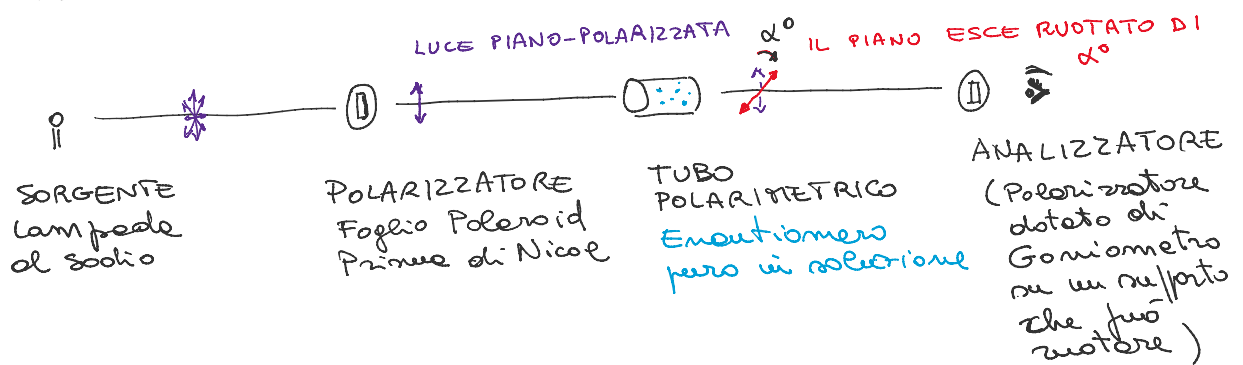 LUCE PIANO-POLARIZZATA
α°
IL PIANO ESCE RUOTATO DI
α°
SORGENTE
Lampada
al sodio
POLARIZZATORE
Foglio Polaroid
Prisma di Nicol
TUBO
POLARIMETRICO
Enantiomero
puro in soluzione
ANALIZZATORE
(Polarizzatore
dotato di
Goniometro
su un supporto
che può
ruotare)